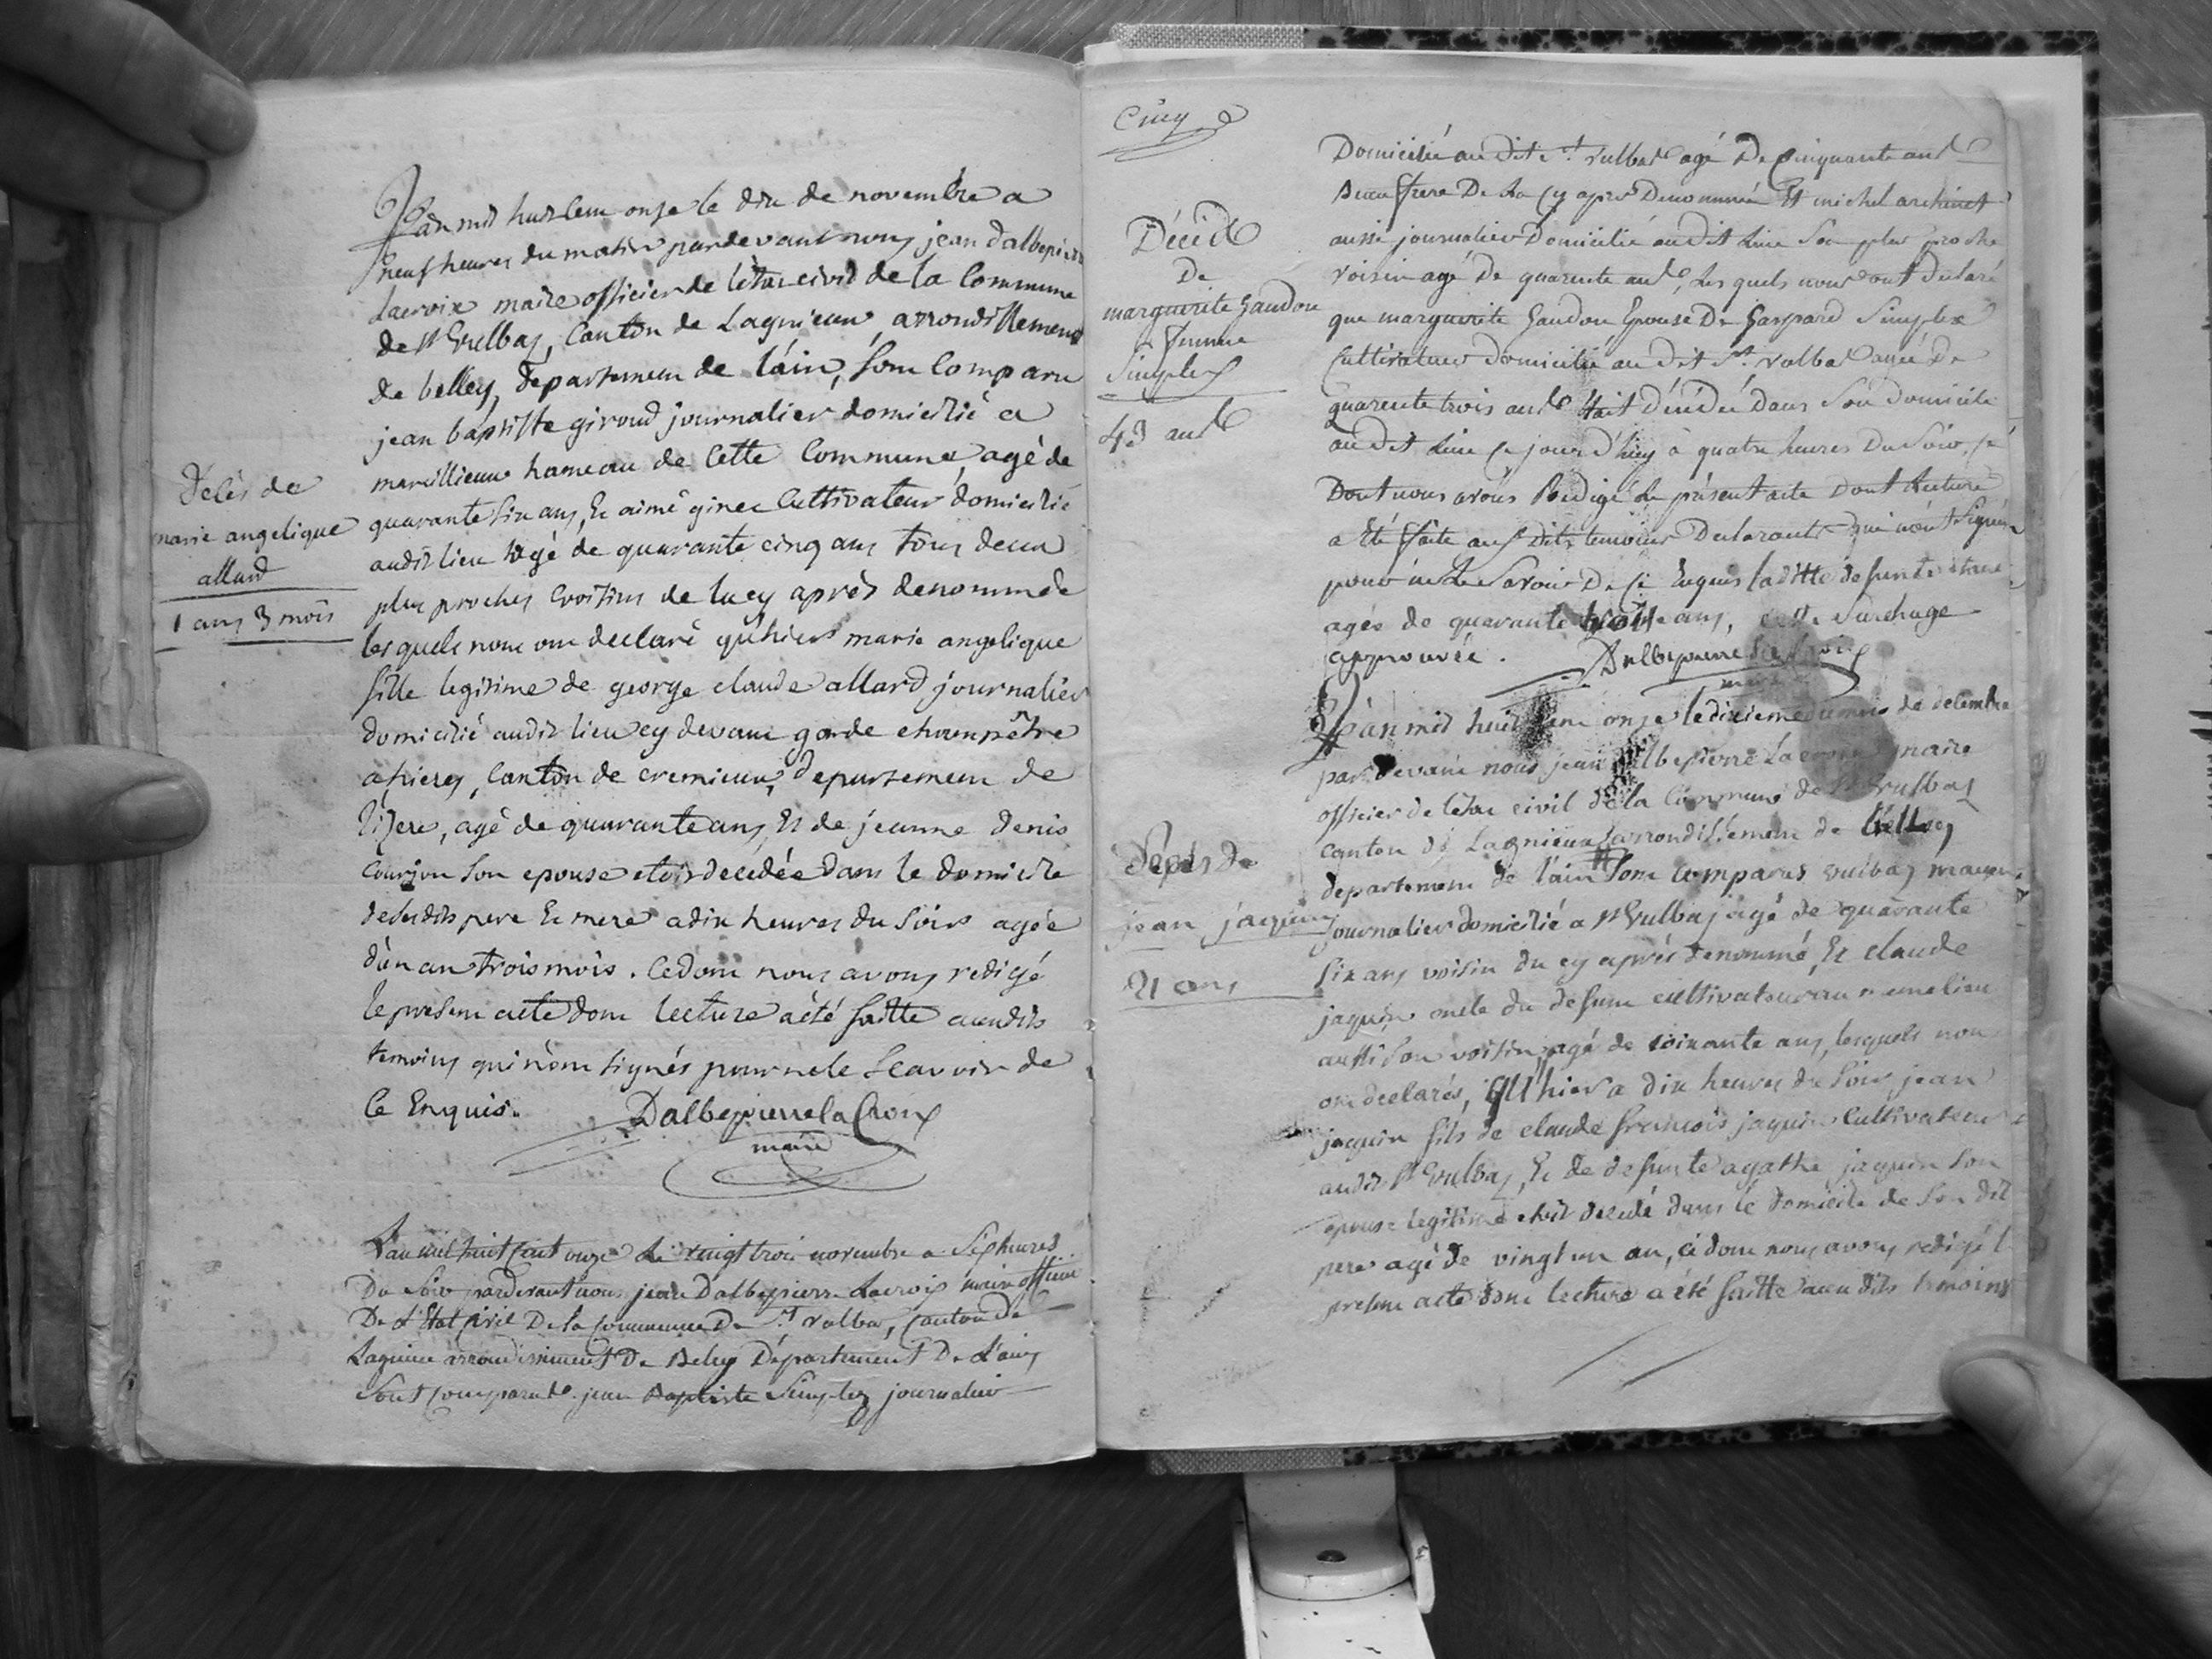 décès de
marie angelique
allard
1 ans 3 mois
L'an mil huit cent onze le dix de novembre a
neuf heures du matin pardevant nous jean dalbepierre
Lacroix maire officier de létat civil de la Commune
de st Vulbas, Canton de Lagnieux, arrondissement
de belley, departement de láin, sont Comparu
jean baptiste giroud journalier domicilié a
marcillieux hameau de Cette Commune, agé de
quarante six ans, Et aimé ginet Cultivateur domicilié
audit lieu agé de quarante cinq ans tous deux
plus proches voisins de lacy après denommée
lesquels nous ont declaré qu'hier marie angelique
fille legitime de george claude allard journalier
domicilié audit lieu cy devant garde champêtre
a hieres, Canton de cremieux, departement de
l'izere, agé de quarante ans, Et de jeanne denis
Courjon son epouse etoit decedée dans le domicile
desdits pere Et mere a dix heures du soir agée
d'un an trois mois. Cedont nous avons redigé
le present acte dont lecture a été faitte auxdits
temoins qui n'ont signés pour ne le scavoir de
Ce Enquis. Dalbepierre la Croix
maire
L'an mil huit Cent onze Le vingt trois novembre a Sept heures
Du Soir pardevant nous jean Dalbepierre Lacroix maire officier
De L'Etat Civil De la Commune De St Vulbas, Canton de
Lagnieu arrondissement De Beley Département De L'ain
Sont Comparut jean Baptiste Simplex journalier
Cinq
Décéd
De
marguerite Gaudon
femme
Simplex
43 ans
Domicilié au Dit St. Vulbas agé De Cinquante ans
Beau frere De La Cy apres Denommée Et michel archinet
aussi journalier Domicilié au Dit Lieu Son plus proche
voisin agé De quarente ans, Les quels nous ont Déclaré
que marguerite Gaudon Epouse De Gaspard Simplex
Cultivateur Domicilié au Dit St. Vulbas agée De
quarente trois ans Etait Décédée Dans Son Domicile
au Dit Lieu Ce jour d'huy à quatre heures Du Soir, Ce
Dont nous avons Redigé Le présent acte Dont Lecture
a Eté faite aux Dits temoins Declarants qui n'ont Signés
pour ne Le Savoir De Ce Enquis laditte defunte étant
agée de quarante trois ans, cette surchage
approuvée. Dalbepierre La Croix
maire
L'an mil huit cent onze le dixieme du mois de décembre
par devant nous jean dalbepierre Lacroix maire
officier de létat civil de la Commune de St Vulbas
canton de Lagnieux, arrondissement de Belley
departement de láin sont comparus vulbas
journalier domicilié a st Vulbas agé de quarante
six ans voisin du cy après denommé, Et claude
jaquin oncle du defunt cultivateur au meme lieu
aussi son voisin, agé de soixante ans, lesquels nous
ont declarés, qu'hier a dix heures du soir jean
jaquin fils de claude francois jaquin Cultivateur
audit st Vulbas, Et de defunte agathe jaquin son
epouse legitime etoit decedé dans le domicile de son dit
pere agé de vingt un an, ce dont nous avons redigé le
present acte dont lecture a été faitte auxdits temoins
décès de
jean jaquin
21 ans